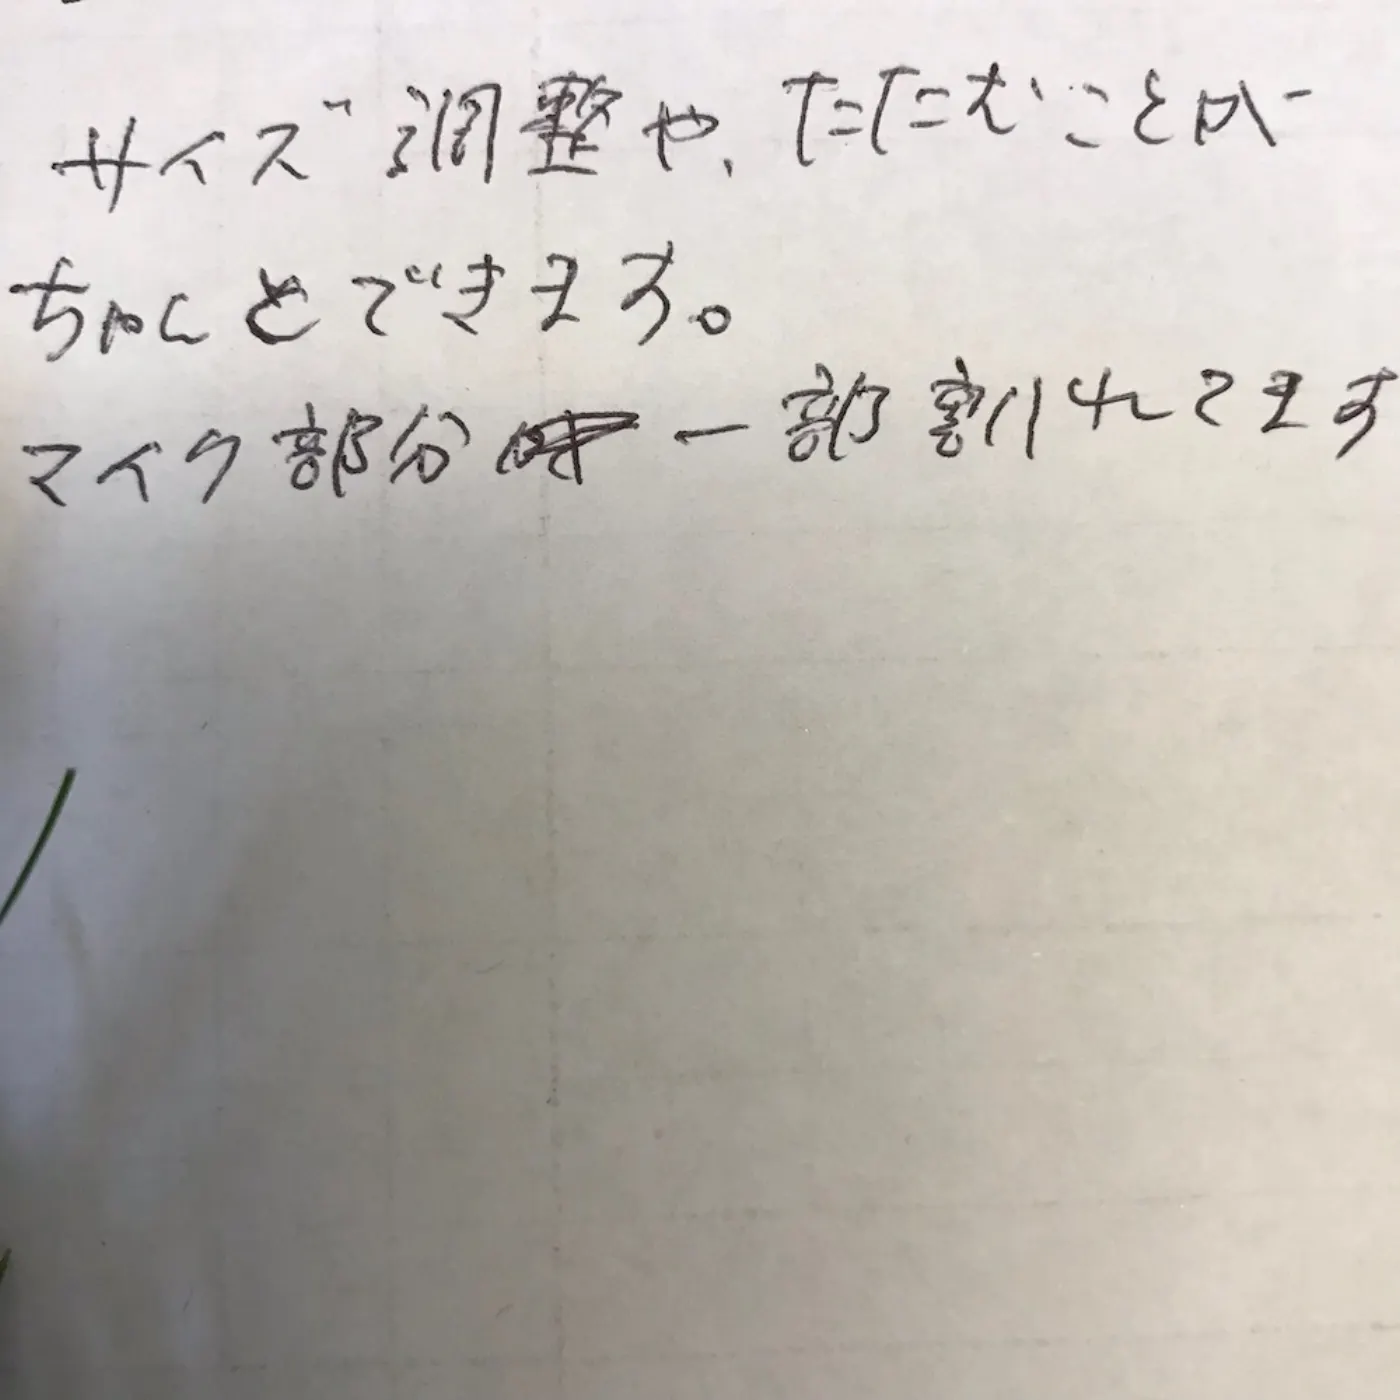 サイズ調整や、たたむことが
ちゃんとできます。
マイク部分 一部割れてます